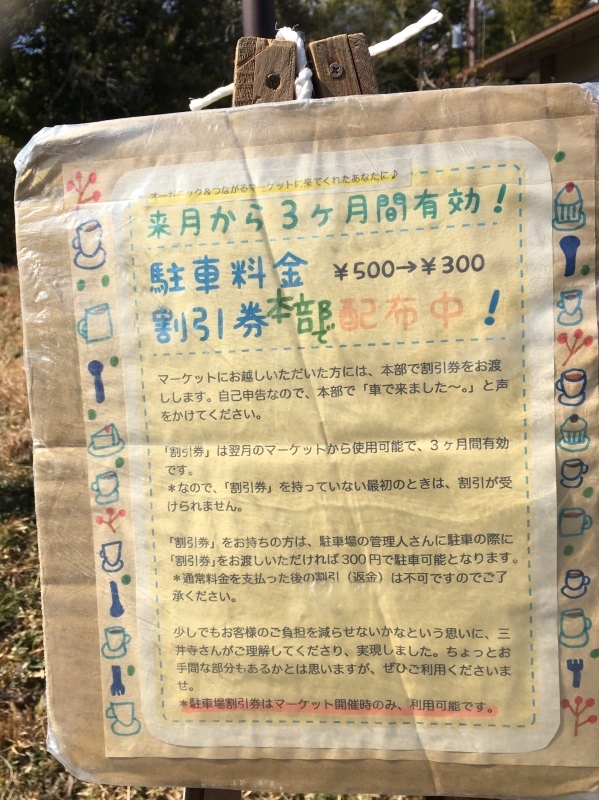 オーガニック&つながるマーケットに来てくれたあなたに♪
来月から3ヶ月間有効!
駐車料金 ¥500→¥300
割引券本部で配布中!
マーケットにお越しいただいた方には、本部で割引券をお渡
しします。自己申告なので、本部で「車で来ました〜。」と声
をかけてください。
「割引券」は翌月のマーケットから使用可能で、3ヶ月間有効
です。
*なので、「割引券」を持っていない最初のときは、割引が受
けられません。
「割引券」をお持ちの方は、駐車場の管理人さんに駐車の際に
「割引券」をお渡しいただければ300円で駐車可能となります。
*通常料金を支払った後の割引(返金)は不可ですのでご了
承ください。
少しでもお客様のご負担を減らせないかなという思いに、三
井寺さんがご理解してくださり、実現しました。ちょっとお
手間な部分もあるかとは思いますが、ぜひご利用くださいま
せ。
*駐車場割引券はマーケット開催時のみ、利用可能です。